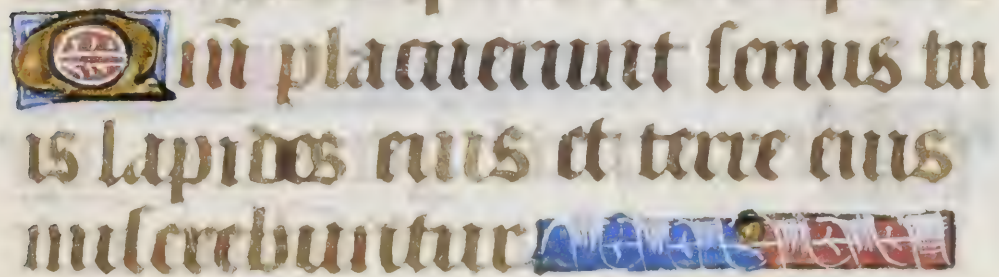 Qm̄ placuerunt ſeruis tu
is lapides eius et terre eius
miſerebuntur